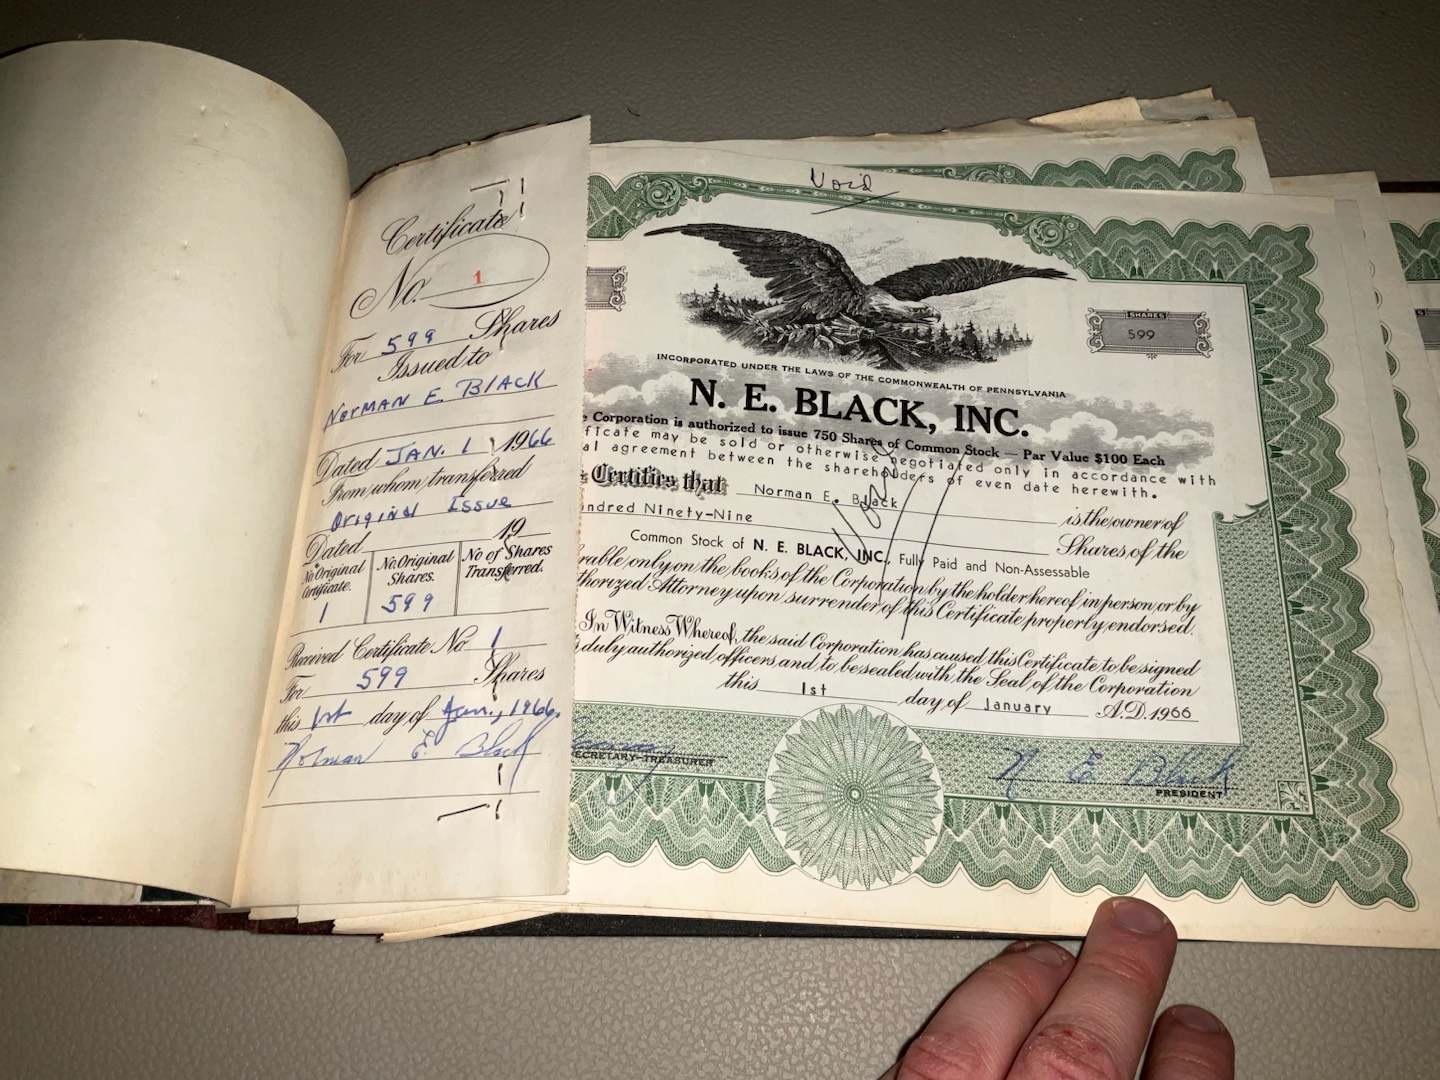 Certificate
No. 1
For 599 Shares
Issued to
Norman E. Black
Dated Jan. 1 1966
From whom transferred
Original Issue
Dated 19
No. Original Certificate. No. Original Shares. No. of Shares Transferred.
1 599
Received Certificate No. 1
For 599 Shares
this 1st day of Jan., 1966.
Norman E. Black
Void
SHARES
599
INCORPORATED UNDER THE LAWS OF THE COMMONWEALTH OF PENNSYLVANIA
N. E. BLACK, INC.
Corporation is authorized to issue 750 Shares of Common Stock — Par Value $100 Each
ficate may be sold or otherwise negotiated only in accordance with
al agreement between the shareholders of even date herewith.
Certifies that Norman E. Black is the owner of
ndred Ninety-Nine Shares of the
Common Stock of N. E. BLACK, INC., Fully Paid and Non-Assessable
rable only on the books of the Corporation by the holder hereof in person, or by
thorized Attorney upon surrender of this Certificate properly endorsed.
Void
In Witness Whereof, the said Corporation has caused this Certificate to be signed
duly authorized officers and to be sealed with the Seal of the Corporation
this 1st day of January A.D. 1966
ECRETARY-TREASURER
N E Black
PRESIDENT